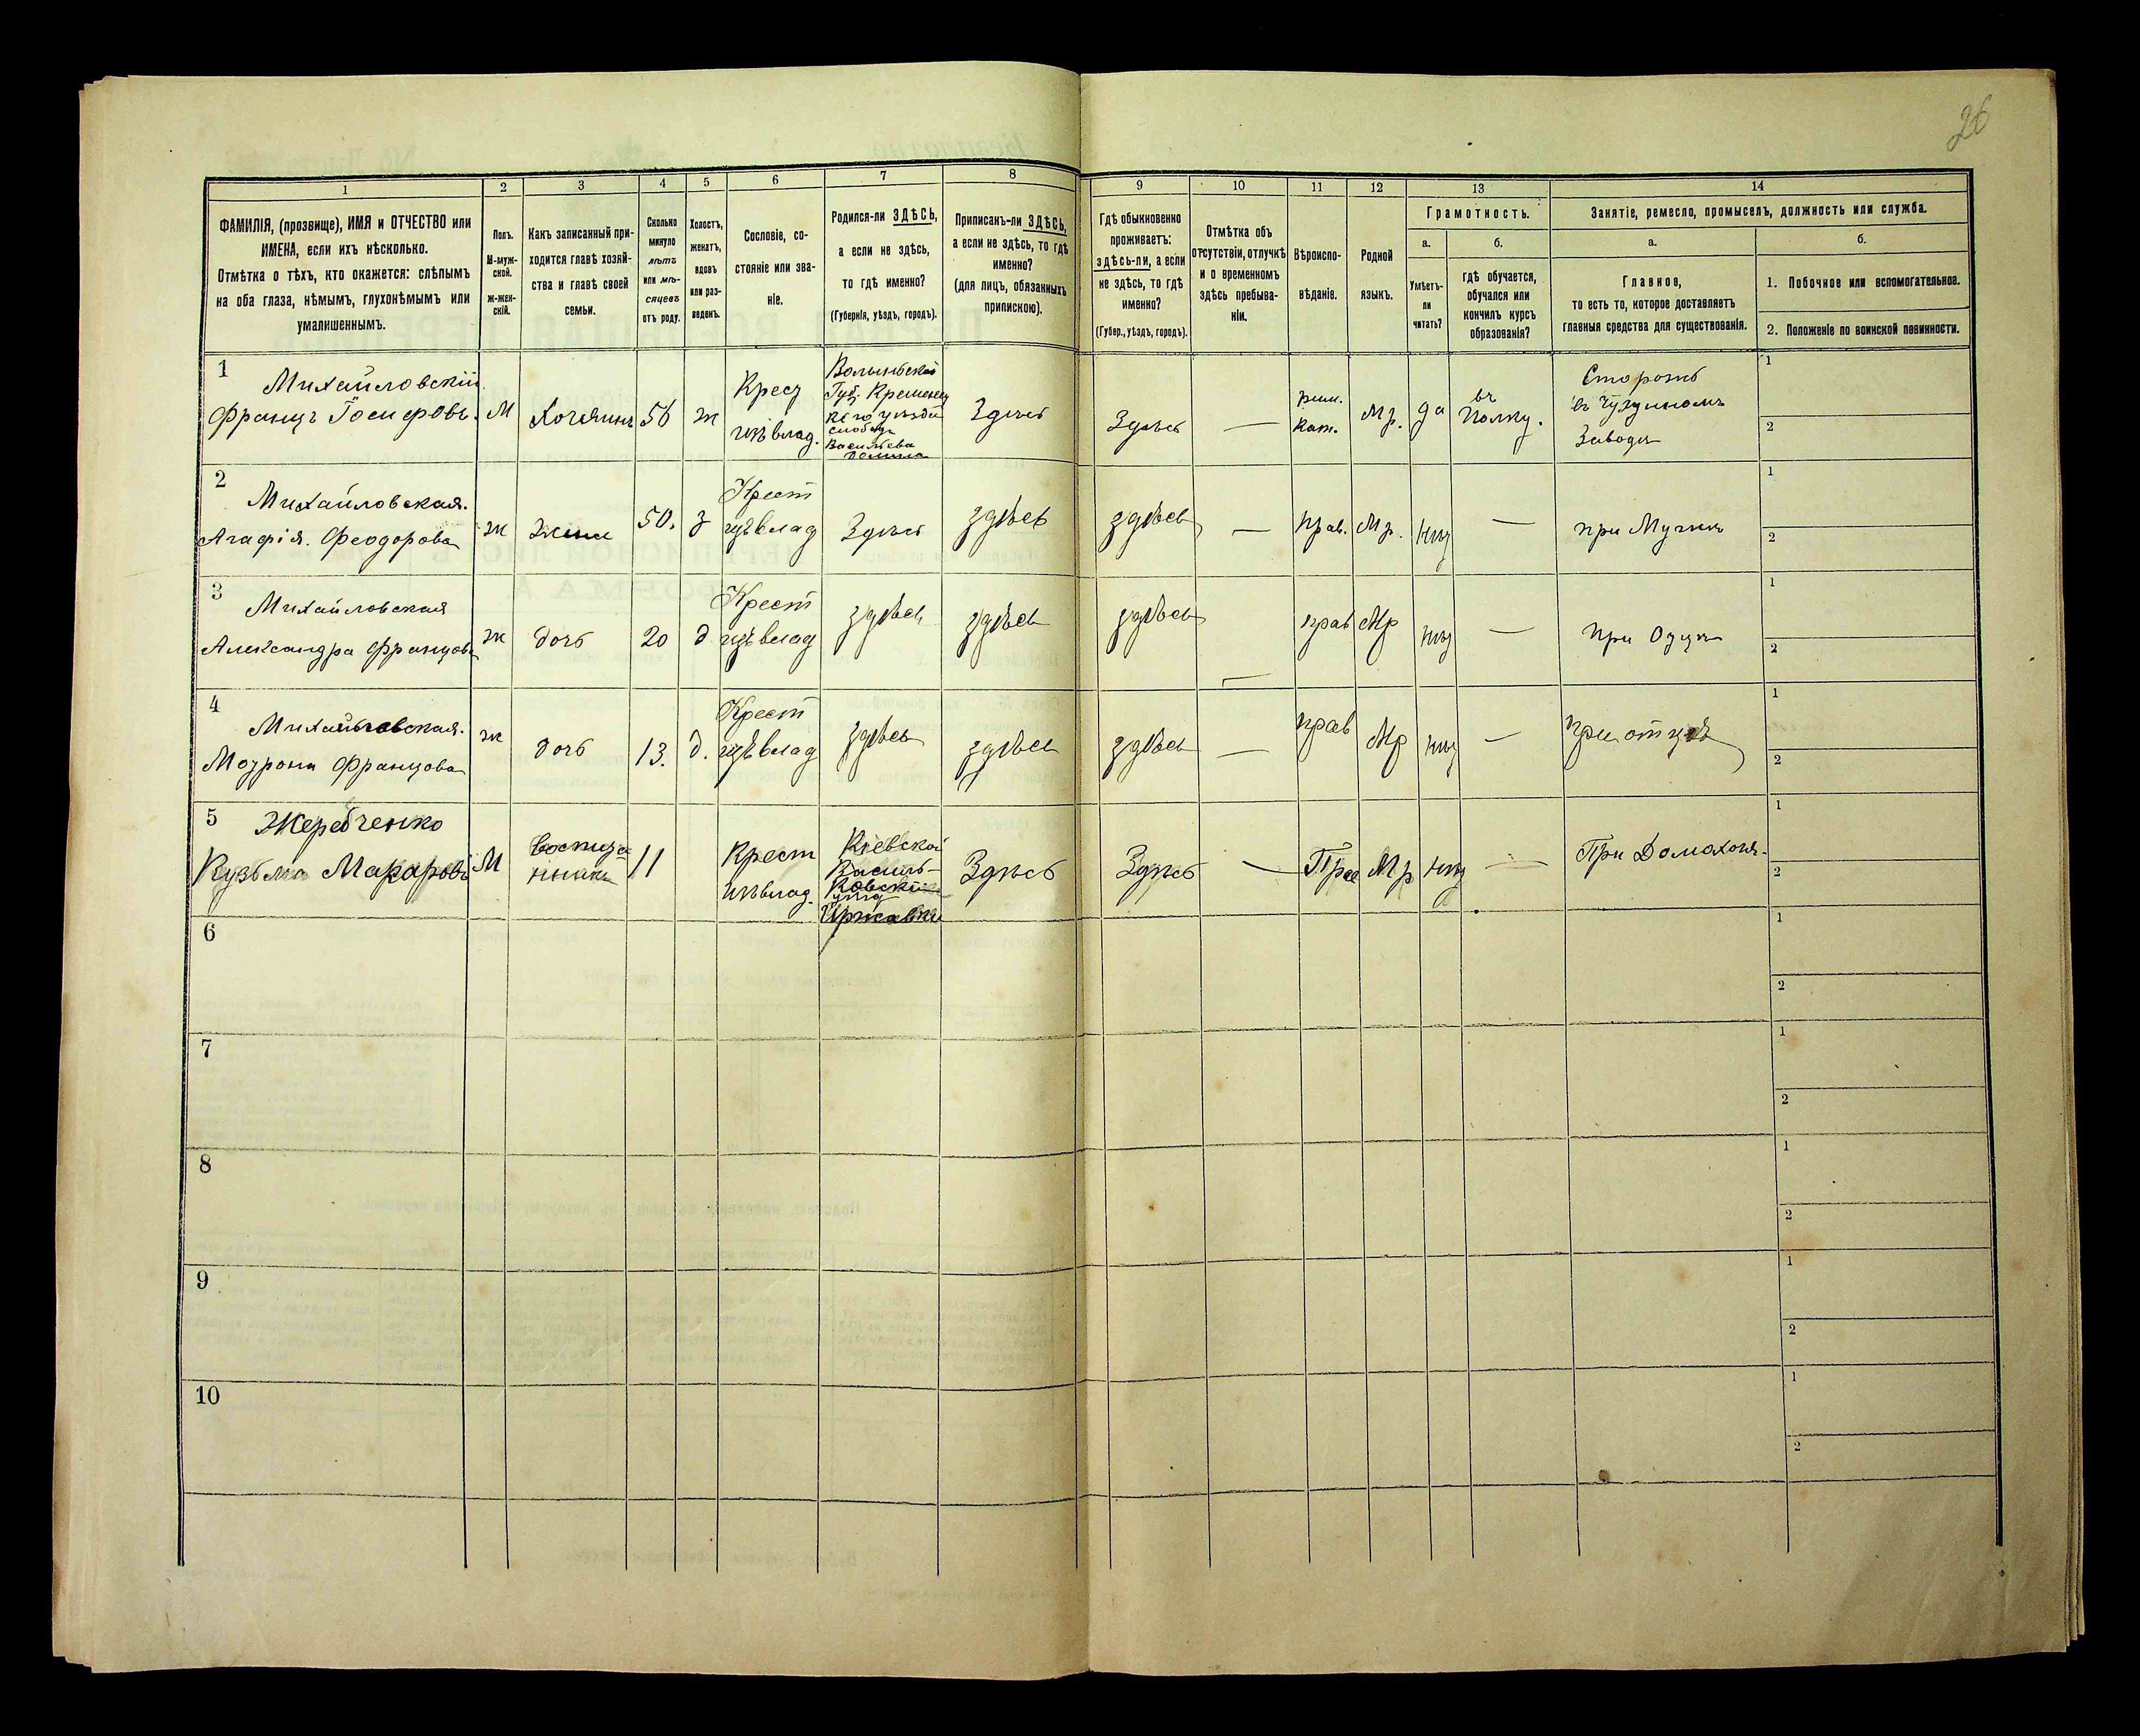 26
1
2
3
4
5
6
7
8
9
10
11
12
13
14
ФАМИЛІЯ, (прозвище), ИМЯ и ОТЧЕСТВО или
ИМЕНА, если ихъ нѣсколько.
Отмѣтка о тѣхъ, кто окажется: слѣпымъ
на оба глаза, нѣмымъ, глухонѣмымъ или
умалишеннымъ.
Полъ.
М-муж-
ской.
ж-жен-
скій.
Какъ записанный при-
ходится главѣ хозяй-
ства и главѣ своей
семьи.
Сколько
минуло
лѣтъ
или мѣ-
сяцевъ
отъ роду.
Холостъ,
женатъ,
вдовъ
или раз-
веденъ.
Сословіе, со-
стояніе или зва-
ніе.
Родился-ли ЗДѢСЬ,
а если не здѣсь,
то гдѣ именно?
(Губернія, уѣздъ, городъ).
Приписанъ-ли ЗДѢСЬ,
а если не здѣсь, то гдѣ
именно?
(для лицъ, обязанныхъ
припискою).
Гдѣ обыкновенно
проживаетъ:
здѣсь-ли, а если
не здѣсь, то гдѣ
именно?
(Губер., уѣздъ, городъ).
Отмѣтка объ
отсутствіи, отлучкѣ
и о временномъ
здѣсь пребыва-
ніи.
Вѣроиспо-
вѣданіе.
Родной
языкъ.
Грамотность.
а.
б.
Умѣетъ-
ли
читать?
гдѣ обучается,
обучался или
кончилъ курсъ
образованія?
Занятіе, ремесло, промыселъ, должность или служба.
а.
б.
Главное,
то есть то, которое доставляетъ
главныя средства для существованія.
1. Побочное или вспомогательное.
2. Положеніе по воинской повинности.
1
Михайловскій
Францъ Іосифовъ.
М
Хозяинъ
56
ж
Крест
изъ влад.
Волынской
Губ. Кременец
каго уѣзда
слобода
Васильева
Долина
Здѣсь
Здѣсь
—
Рим.
Кат.
Мр.
да
въ
Полку.
Сторожъ
въ Чугунномъ
Заводѣ
1
2
2
Михайловская.
Агафія. Феодорова
ж
жена
50.
з
Крест
изъ влад
Здѣсь
здѣсь
здѣсь
—
Прав.
Мр.
нѣт
—
при Мужѣ
1
2
3
Михайловская
Александра Францова
ж
дочь
20
д
Крест
изъ влад
здѣсь
здѣсь
здѣсь
—
прав
Мр
нѣт
—
при Отцѣ
1
2
4
Михайловская.
Мотрона Францова
ж
дочь
13.
д.
Крест
изъ влад
здѣсь
здѣсь
здѣсь
—
прав
Мр
нѣт
—
при отцѣ
1
2
5
Жеребченко
Кузьма Макаровъ
М
воспита
нникъ
11
Крест
изъ влад.
Кіевской
Василь-
ковскій
Здѣсь
Здѣсь
—
Прав
Мр
нѣт
—
При Домохозя.
1
2
6
1
2
7
1
2
8
1
2
9
1
2
10
1
2